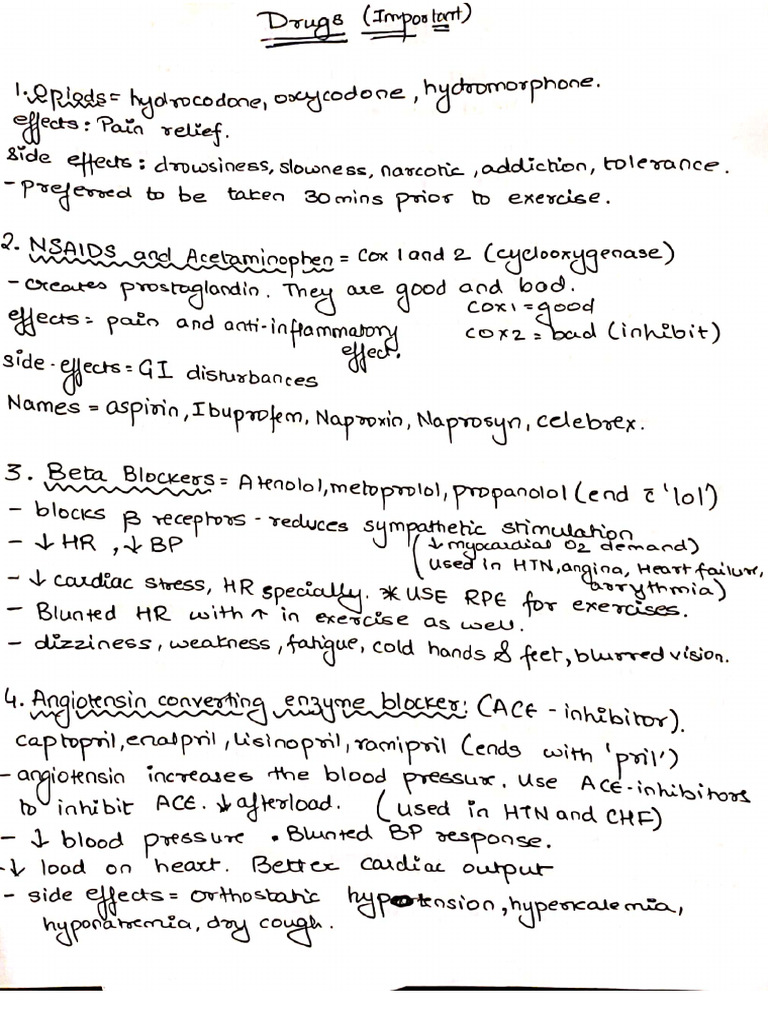 Drugs (Important)
1. Opiods = hydrocodone, oxycodone, hydromorphone.
effects: Pain relief.
side effects: drowsiness, slowness, narcotic, addiction, tolerance.
- preferred to be taken 30mins prior to exercise.
2. NSAIDS and Acetaminophen = Cox 1 and 2 (cyclooxygenase)
- creates prostaglandin. They are good and bad.
COX1 = good
effects = pain and anti-inflammatory effect.
COX2 = bad (inhibit)
side-effects = GI disturbances
Names = aspirin, Ibuprofem, Naproxin, Naprosyn, celebrex.
3. Beta Blockers = Atenolol, metoprolol, propanolol (end c̄ 'lol')
- blocks β receptors - reduces sympathetic stimulation
- ↓ HR, ↓ BP (↓ myocardial O2 demand)
(used in HTN, angina, Heart failure, arrythmia)
- ↓ cardiac stress, HR specially. * USE RPE for exercises.
- Blunted HR with ↑ in exercise as well.
- dizziness, weakness, fatigue, cold hands & feet, blurred vision.
4. Angiotensin converting enzyme blocker: (ACE - inhibitor).
captopril, enalpril, lisinopril, ramipril (ends with 'pril')
- angiotensin increases the blood pressure. Use ACE-inhibitors
to inhibit ACE. ↓ afterload. (used in HTN and CHF)
- ↓ blood pressure • Blunted BP response.
- ↓ load on heart. Better cardiac output
- side effects = orthostatic hypotension, hyperkalemia,
hyponatremia, dry cough.